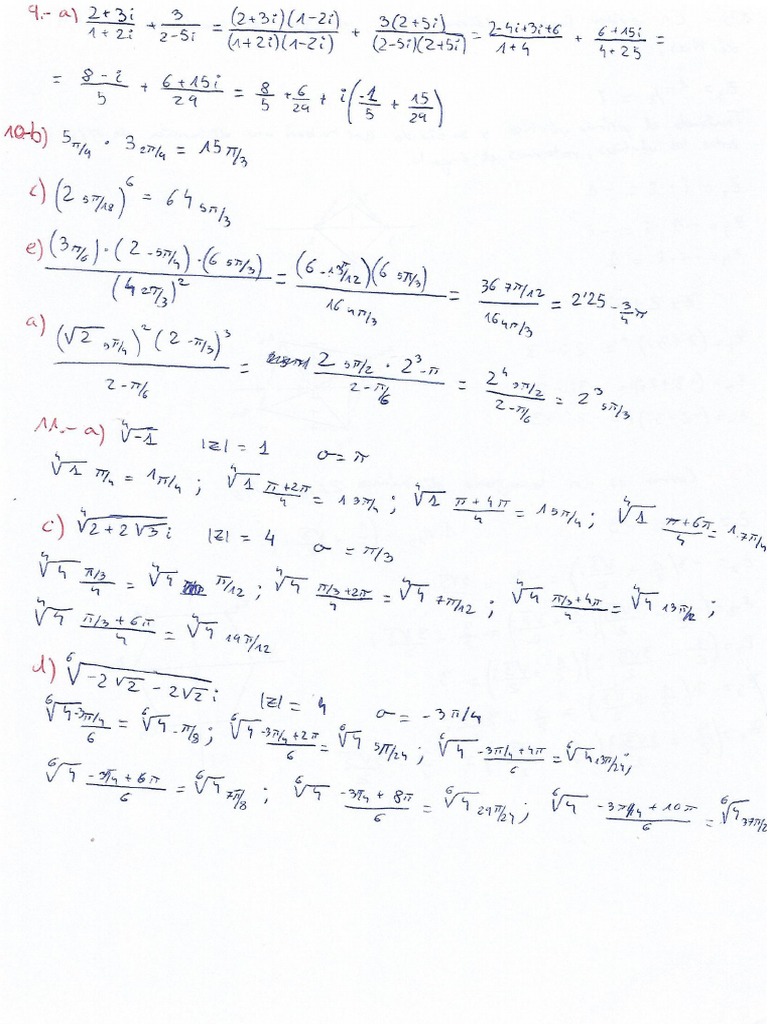 9.- a) (2+3i)/(1+2i) + 3/(2-5i) = ((2+3i)(1-2i))/((1+2i)(1-2i)) + (3(2+5i))/((2-5i)(2+5i)) = (2-4i+3i+6)/(1+4) + (6+15i)/(4+25) =
= (8-i)/5 + (6+15i)/29 = 8/5 + 6/29 + i(-1/5 + 15/29)
10.-b) 5_{π/4} · 3_{2π/4} = 15_{π/3}
c) (2_{5π/18})^6 = 64_{5π/3}
e) ((3_{π/6})·(2_{-5π/4})·(6_{5π/3}))/(4_{2π/3})^2 = ((6_{-13π/12})(6_{5π/3}))/16_{4π/3} = 36_{7π/12}/16_{4π/3} = 2'25_{-3/4 π}
a) ((√2_{3π/4})^2 (2_{-π/3})^3)/2_{-π/6} = (2_{3π/2} · 2^3_{-π})/2_{-π/6} = 2^4_{3π/2}/2_{-π/6} = 2^3_{5π/3}
11.- a) ∜-1 |z| = 1 σ = π
∜1_{π/4} = 1_{π/4} ; ∜1_{(π+2π)/4} = 1_{3π/4} ; ∜1_{(π+4π)/4} = 1_{5π/4} ; ∜1_{(π+6π)/4} = 1_{7π/4}
c) ∜(2+2√3 i) |z| = 4 σ = π/3
∜4_{(π/3)/4} = ∜4_{π/12} ; ∜4_{(π/3+2π)/4} = ∜4_{7π/12} ; ∜4_{(π/3+4π)/4} = ∜4_{13π/12} ;
∜4_{(π/3+6π)/4} = ∜4_{19π/12}
d) ⁶√(-2√2 - 2√2 i) |z| = 4 σ = -3π/4
⁶√4_{(-3π/4)/6} = ⁶√4_{-π/8} ; ⁶√4_{(-3π/4+2π)/6} = ⁶√4_{5π/24} ; ⁶√4_{(-3π/4+4π)/6} = ⁶√4_{13π/24} ;
⁶√4_{(-3π/4+6π)/6} = ⁶√4_{7π/8} ; ⁶√4_{(-3π/4+8π)/6} = ⁶√4_{29π/24} ; ⁶√4_{(-3π/4+10π)/6} = ⁶√4_{37π/2}